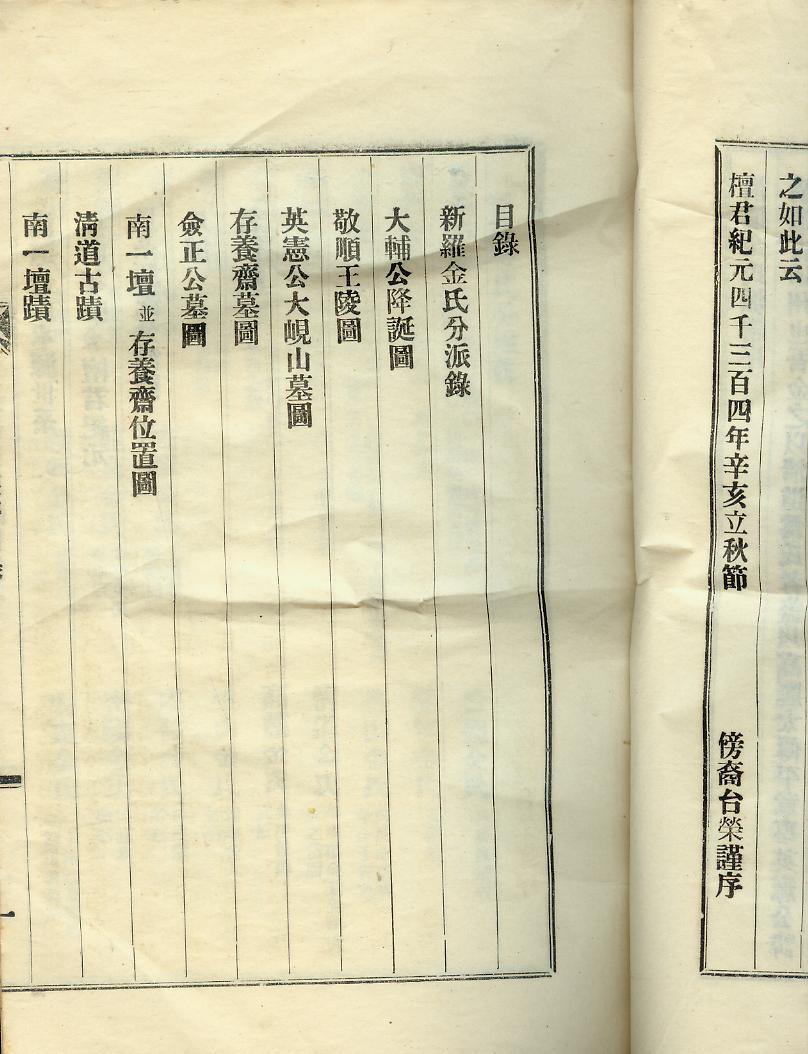 之如此云
檀君紀元四千三百四年辛亥立秋節 傍裔台榮謹序
目錄
新羅金氏分派錄
大輔公降誕圖
敬順王陵圖
英憲公大峴山墓圖
存養齋墓圖
僉正公墓圖
南一壇並存養齋位置圖
淸道古蹟
南一壇蹟
一